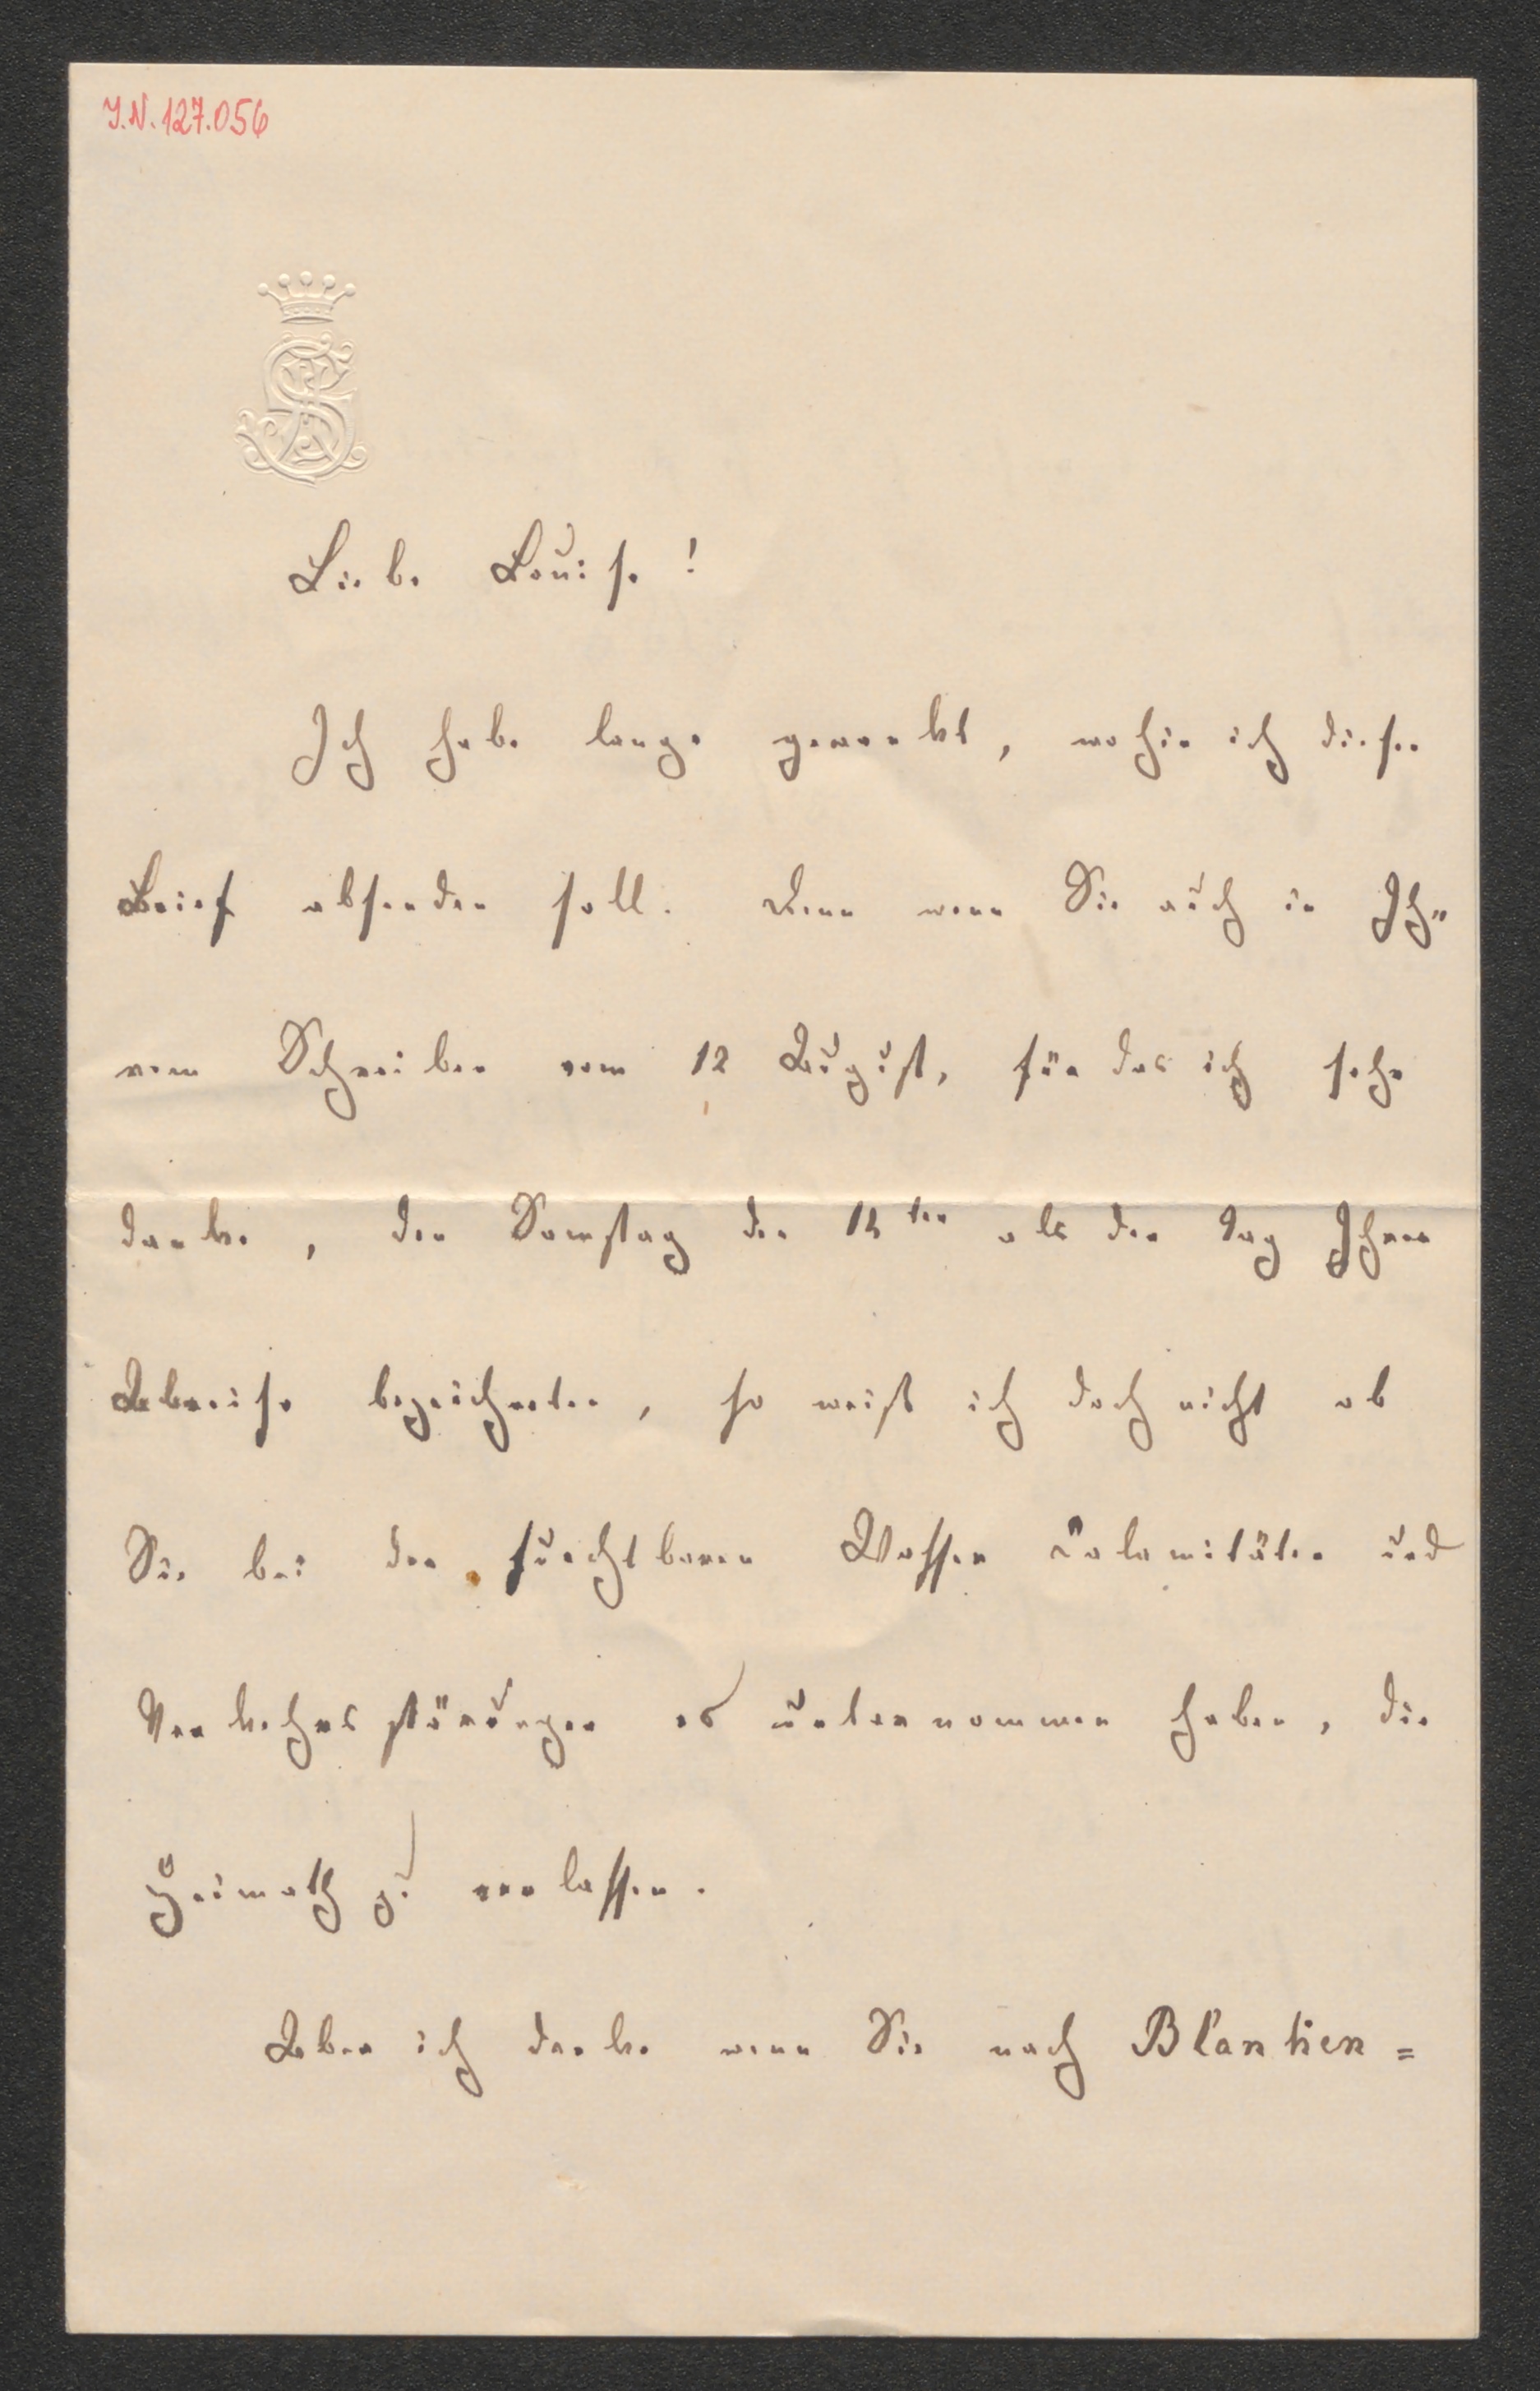 J.N. 127.056
Liebe Louise!
Ich habe lange gewankt, wohin ich diesen
Brief absenden soll. Denn wenn Sie auch in Ih=
rem Schreiben vom 12 August, für das ich sehr
danke, den Samstag den als den Tag Ihrer
Abreise bezeichneten, so weiß ich doch nicht ob
Sie bei den furchtbaren Wasser Calamitäten und
Verkehrsstörungen es unternommen haben, die
Heimath zu verlassen.
Aber ich denke wenn Sie nach Blanken=